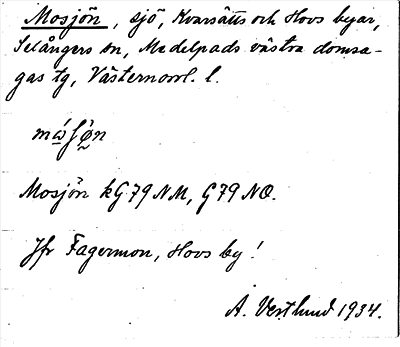 Mosjön, sjö, Kvarsätts och Hovs byar,
Selångers sn, Medelpads västra domsa-
gas tg, Västernorrl. l.
Mosjön kG79NM, G79NO.
Jfr Fagermon, Hovs by!
Å. Vestlund 1934.